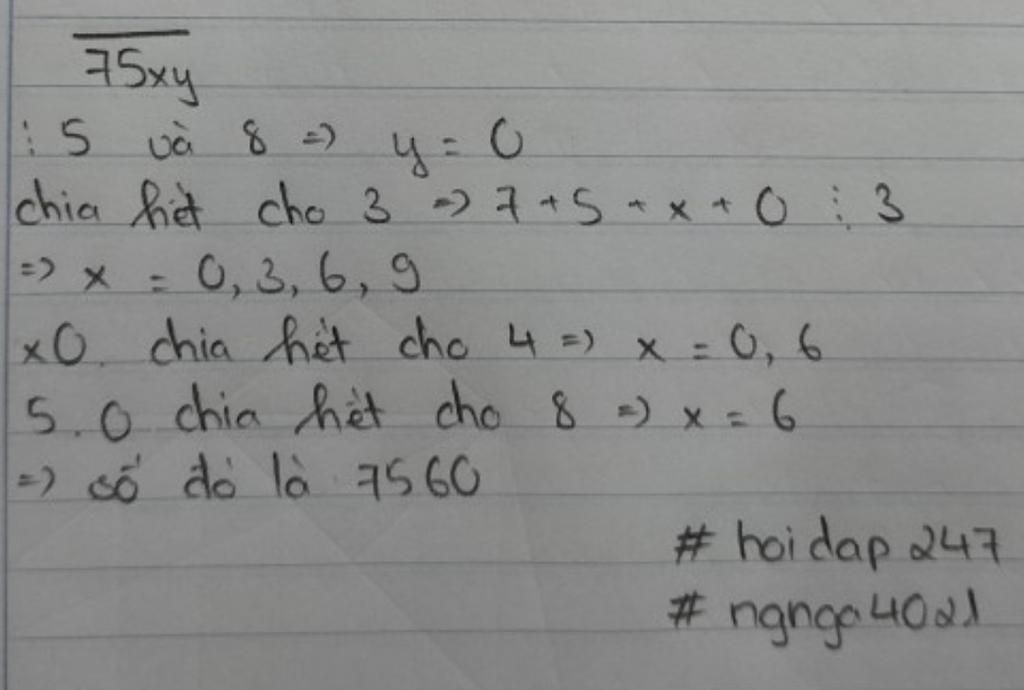 75xy
⋮ 5 và 8 => y = 0
chia hết cho 3 => 7 + 5 + x + 0 ⋮ 3
=> x = 0, 3, 6, 9
x0. chia hết cho 4 => x = 0, 6
5.0 chia hết cho 8 => x = 6
=> số đó là 7560
# hoidap 247
# ngnga4021